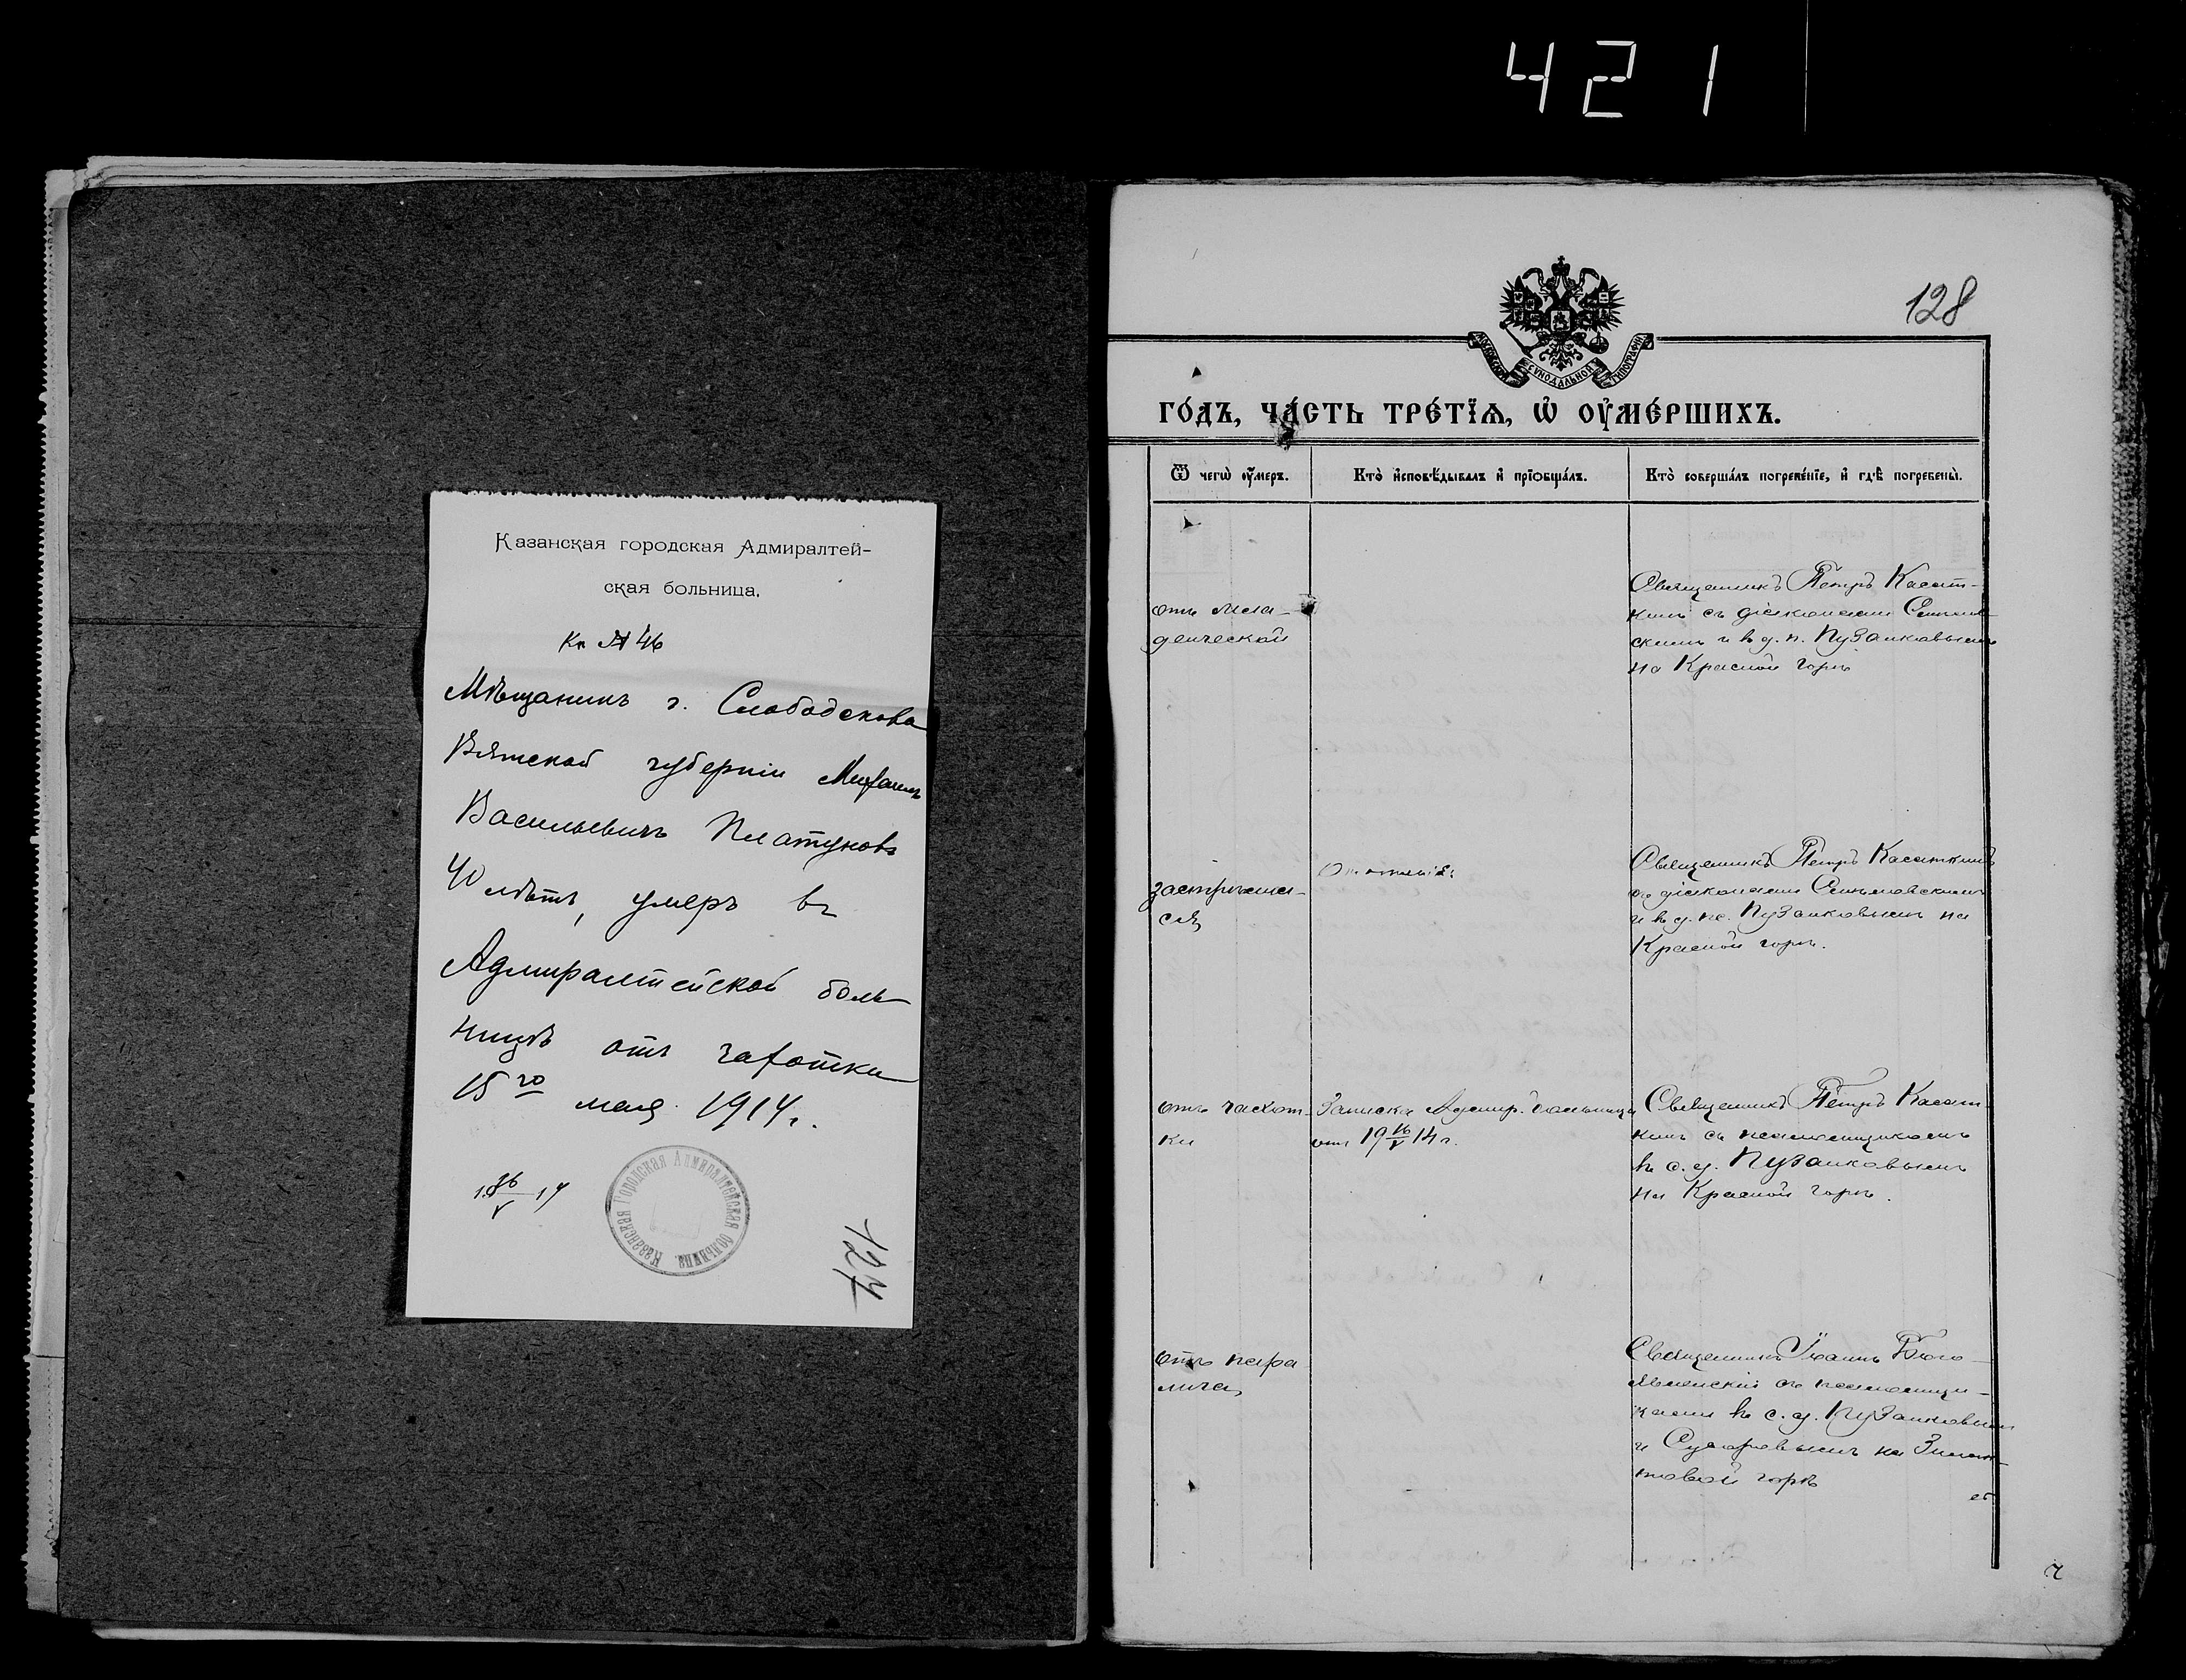 421
Казанская городская Адмиралтей-
ская больница.
Кн № 46
Мѣщанинъ г. Слободскова
Вятской губерніи Михаилъ
Васильевичъ Платуновъ
40 лѣтъ, умеръ въ
Адмиралтейской боль-
ницѣ отъ чахотки
15го мая 1914г.
16/V 14
Казанская Городская Адмиралтейская больница
127
128
Московской Сѵнодальной Типографіи
ГО́ДЪ, ЧА́СТЬ ТРЕ́ТЇѦ, Ѡ҆ ОУ҆МЕ́РШИХЪ.
Ѿ чегѡ̀ ᲂу҆́меръ.
Кто̀ и҆сповѣ́дывалъ и҆ прїобща́лъ.
Кто̀ соверша́лъ погребе́нїе, и҆ гдѣ̀ погребены̀.
отъ мла-
денческой
Священникъ Петръ Касат-
кинъ съ діакономъ
скимъ и в д. п. Пузанковымъ
на Красной горкѣ
застрѣлил-
ся
Священникъ Петръ Касаткинъ
съ діакономъ
и в д. пс. Пузанковымъ на
Красной горкѣ.
отъ чахот-
ки
Записка Адмир. больницы
отъ 19 16/V 14 г.
Священникъ Петръ Касат-
кинъ съ псаломщикомъ
в с. д. Пузанковымъ
на Красной горкѣ.
отъ пара
лича
Священникъ Іоаннъ Бого-
явленскій съ псаломщи-
комъ в с. д. Пузанковымъ
и на Зилан-
товой горкѣ